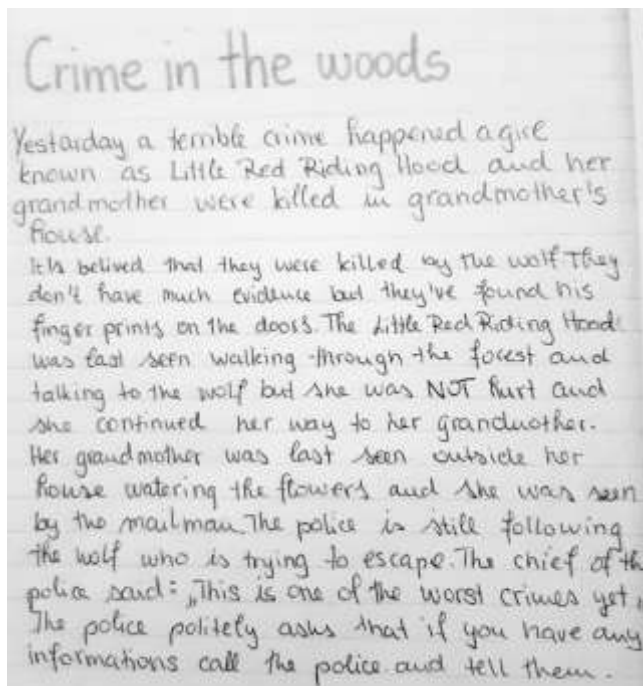 Crime in the woods
Yestarday a terrible crime happened a girl
known as Little Red Riding Hood and her
grandmother were killed in grandmother's
house.
It is belived that they were killed by the wolf. They
don't have much evidence but they've found his
finger prints on the doors. The Little Red Riding Hood
was last seen walking through the forest and
talking to the wolf but she was NOT hurt and
she continued her way to her grandmother.
Her grandmother was last seen outside her
house watering the flowers and she was seen
by the mailman. The police is still following
the wolf who is trying to escape. The chief of th
police said: „This is one of the worst crimes yet.
The police politely asks that if you have any
informations call the police and tell them.